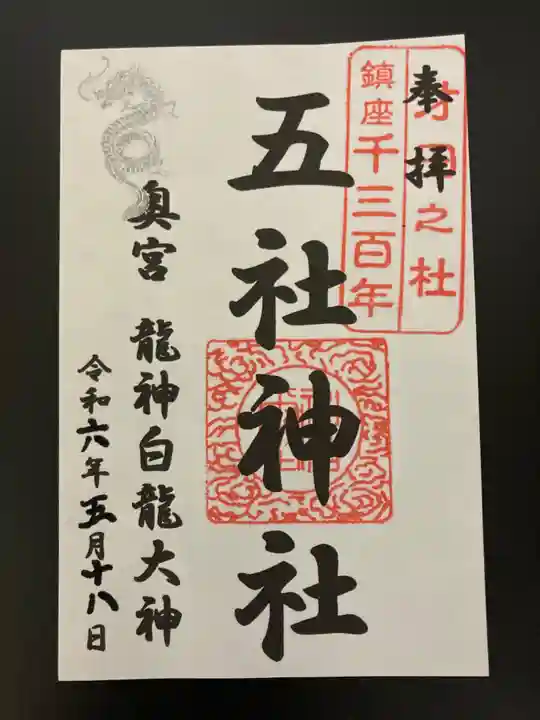 奉拝
之社
鎮座千三百年
五社神社
奥宮 龍神白龍大神
令和六年五月十八日